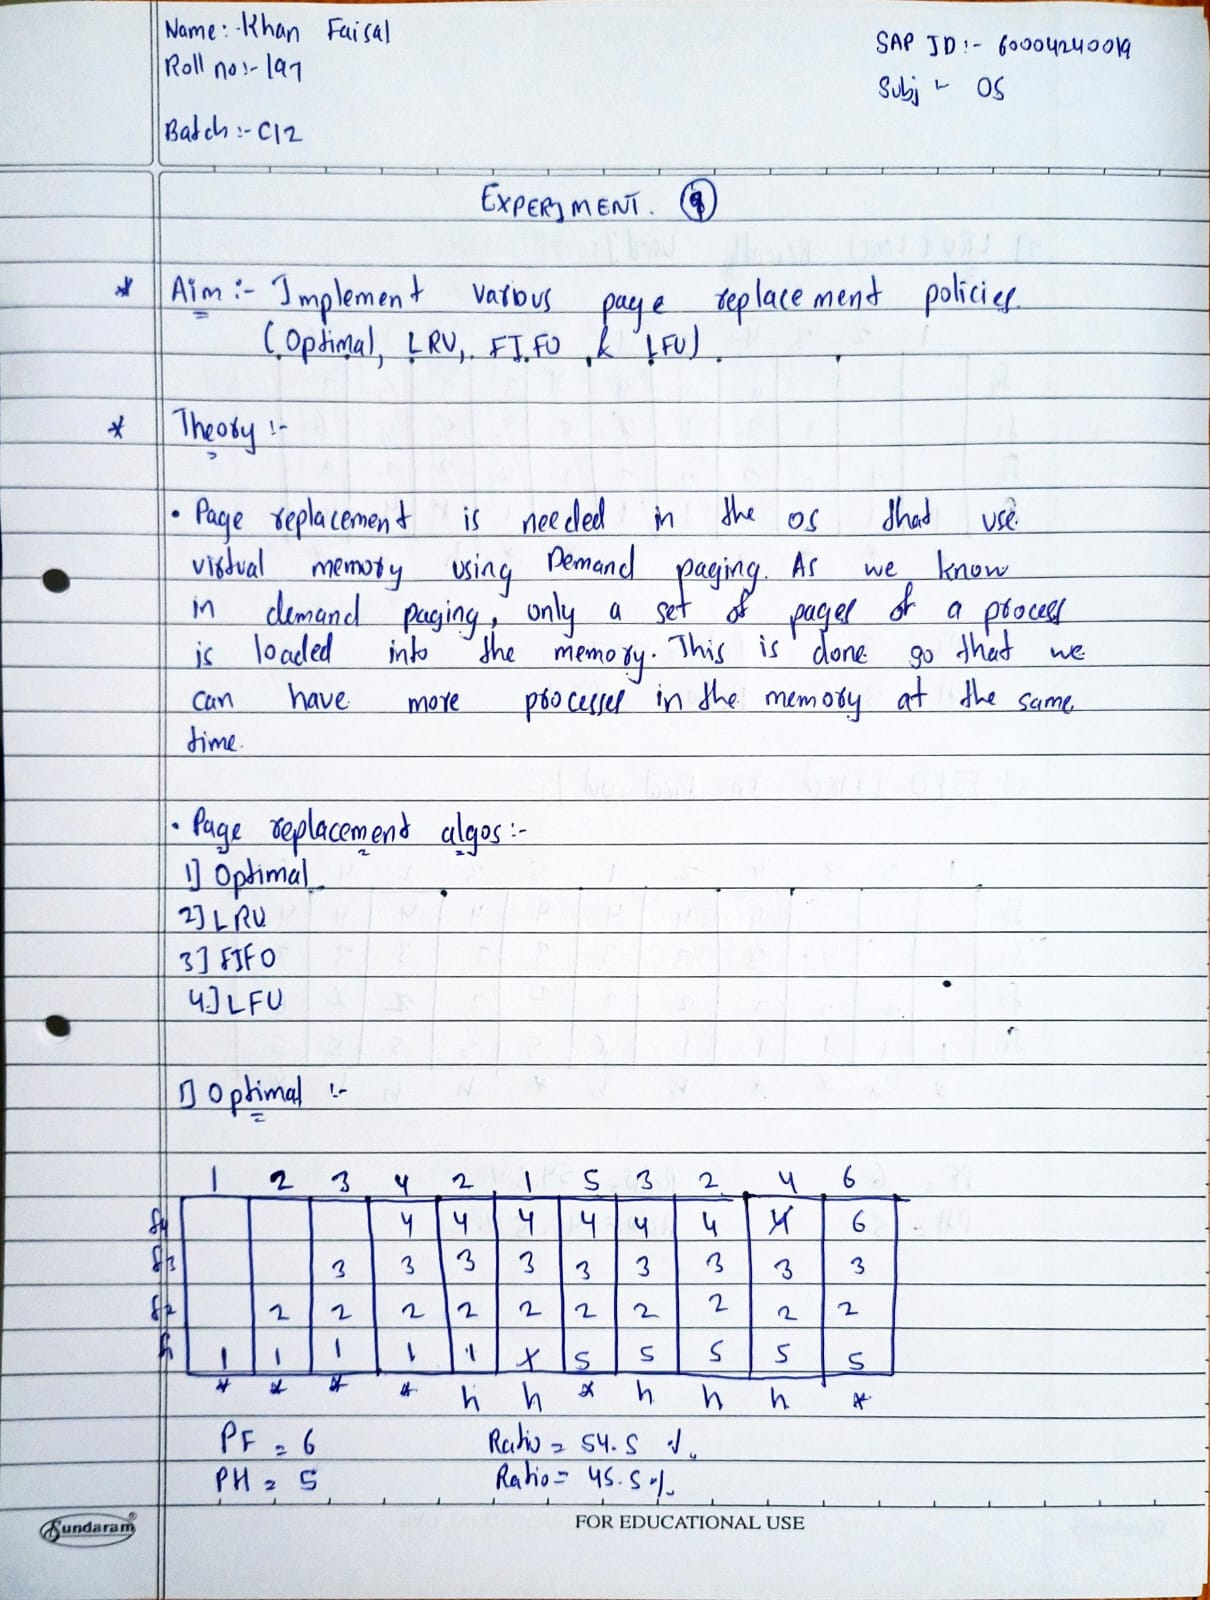 Name:- Khan Faisal
SAP ID:- 60004240019
Roll no:- 197
Subj :- OS
Batch:- C12
EXPERIMENT. 9
* Aim:- Implement various page replacement policies.
(Optimal, LRU, FIFO & LFU).
* Theory :-
• Page replacement is needed in the OS that use
virtual memory using Demand paging. As we know
in demand paging, only a set of pages of a process
is loaded into the memory. This is done so that we
can have more processes in the memory at the same
time.
• Page replacement algos:-
1] Optimal
2] LRU
3] FIFO
4] LFU
1] Optimal :-
1 2 3 4 2 1 5 3 2 4 6
f4 4 4 4 4 4 4 4 6
f3 3 3 3 3 3 3 3 3 3
f2 2 2 2 2 2 2 2 2 2 2
f1 1 1 1 1 1 1 5 5 5 5 5
* * * * h h * h h h *
PF = 6 Ratio = 54.5 %
PH = 5 Ratio = 45.5 %
Sundaram®
FOR EDUCATIONAL USE